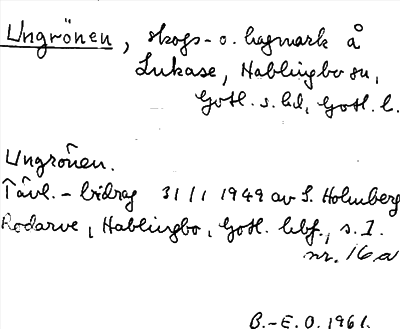 Ungrönen, skogs- o. hagmark å
Lukase, Hablingbo sn,
Gotl. s. hd, Gotl. l.
Ungrönen.
Tävl.-bidrag 31/1 1949 av S. Holmberg
Rodarve, Hablingbo, Gotl. lbf., s. 1.
nr. 16 a
B.-E. O. 1961.